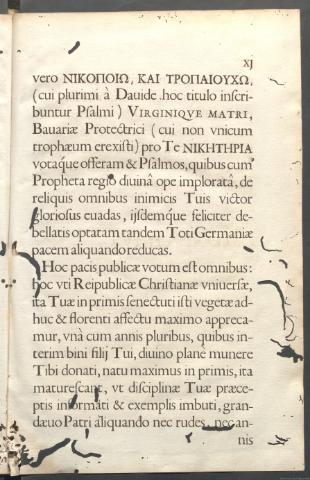 xj
vero ΝΙΚΟΠΟΙΩ, ΚΑΙ ΤΡΟΠΑΙΟΥΧΩ,
(cui plurimi à Dauide hoc titulo inscri-
buntur Psalmi) VIRGINIQVE MATRI,
Bauariæ Protectrici (cui non vnicum
trophæum erexisti) pro Te ΝΙΚΗΤΗΡΙΑ
votaq́ue offeram & Psalmos, quibus cum
Propheta regio diuinâ ope imploratâ, de
reliquis omnibus inimicis Tuis victor
gloriosus euadas, ijsdemque feliciter de-
bellatis optatam tandem Toti Germaniæ
pacem aliquando reducas.
Hoc pacis publicæ votum est omnibus:
hoc vti Reipublicæ Christianæ vniuersæ,
ita Tuæ in primis senectuti isti vegetæ ad-
huc & florenti affectu maximo appreca-
mur, vnà cum annis pluribus, quibus in-
terim bini filij Tui, diuino planè munere
Tibi donati, natu maximus in primis, ita
maturescant, vt disciplinæ Tuæ præce-
ptis informati & exemplis imbuti, gran-
dæuo Patri aliquando nec rudes, nec an-
nis